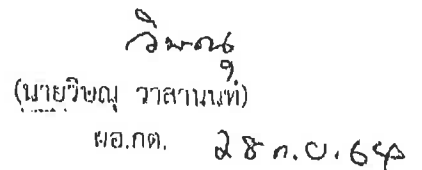 วิษณุ
(นายวิษณุ วาสานนท์)
ผอ.กต. 28 ก.ย. 64